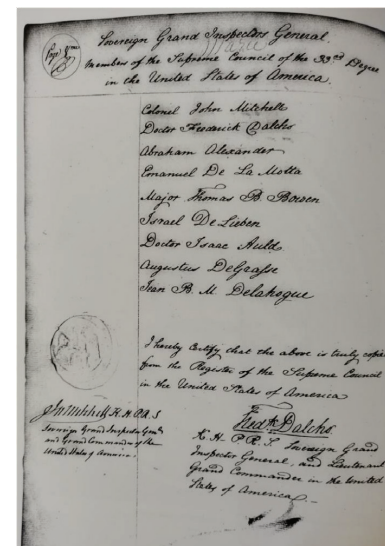 Sovereign Grand Inspectors General.
Members of the Supreme Council of the 33rd Degree
in the United States of America.
Colonel John Mitchell
Doctor Frederick Dalcho
Abraham Alexander
Emanuel De La Motta
Major Thomas B. Bowen
Israel De Lieben
Doctor Isaac Auld
Augustus DeGrasse
Jean B. M. Delahogue
I hereby Certify that the above is truly copied
from the Register of the Supreme Council
in the United States of America
Jno Mitchell K. H.
Sovereign Grand Inspector Genl.
and Grand Commander of the
United States of America.
Fredk. Dalcho
K. H. P. R. S. Sovereign Grand
Inspector General, and Lieutenant
Grand Commander in the United
States of America